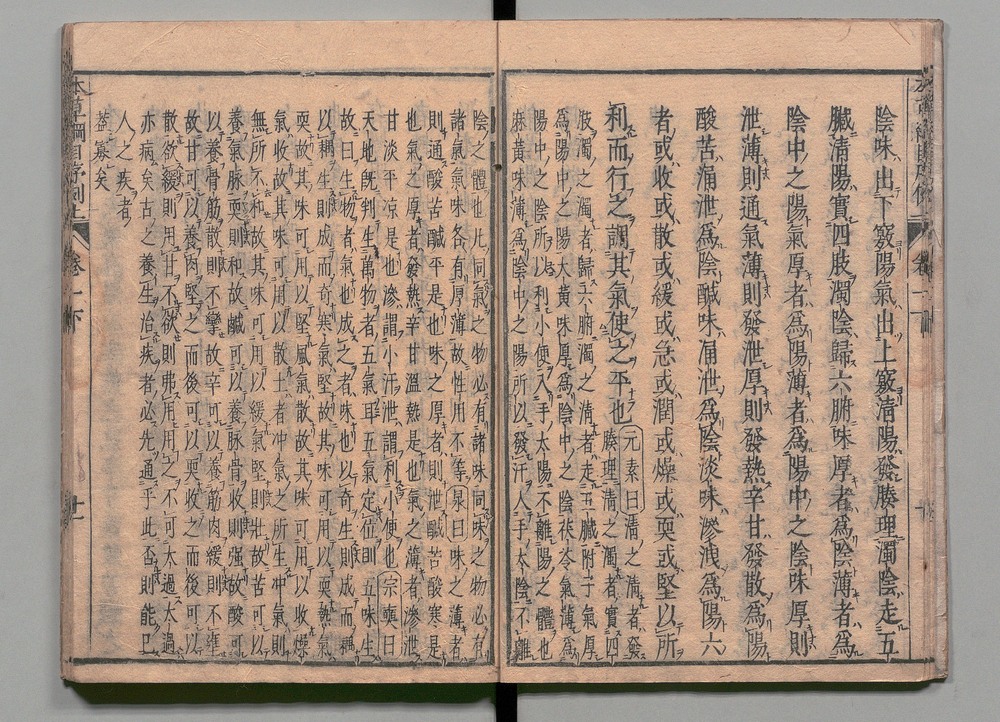 陰味出下竅陽氣出上竅清陽發腠理濁陰走五
臟清陽實四肢濁陰歸六腑味厚者爲陰薄者爲
陰中之陽氣厚者爲陽薄者爲陽中之陰味厚則
泄薄則通氣薄則發泄厚則發熱辛甘發散爲陽
酸苦涌泄爲陰鹹味涌泄爲陰淡味滲洩爲陽六
者或收或散或緩或急或潤或燥或耎或堅以所
利而行之調其氣使之平也
元素曰清之清者發
腠理清之濁者實四
肢濁之濁者歸六腑濁之清者走五臟附子氣厚
爲陽中之陽大黃味厚爲陰中之陰茯苓氣薄爲
陽中之陰所以利小便入手太陽不離陽之體也
麻黃味薄爲陰中之陽所以發汗入手太陰不離
陰之體也凡同氣之物必有諸味同味之物必有
諸氣氣味各有厚薄故性用不等杲曰味之薄者
則通酸苦鹹平是也味之厚者則泄鹹苦酸寒是
也氣之厚者發熱辛甘溫熱是也氣之薄者滲泄
甘淡平涼是也滲謂小汗泄謂利小便也宗奭曰
天地旣判生萬物者五氣耳五氣定位則五味生
故曰生物者氣也成之者味也以奇生則成而耦
以耦生則成而奇寒氣堅故其味可用以耎熱氣
耎故其味可用以堅風氣散故其味可用以收燥
氣收故其味可用以散土者冲氣之所生冲氣則
無所不和故其味可用以緩氣堅則壯故苦可以
養氣脉耎則和故鹹可以養脉骨收則强故酸可
以養骨筋散則不攣故辛可以養筋肉緩則不壅
故甘可以養肉堅之而後可以耎收之而後可以
散欲緩則用甘不欲則弗用用之不可太過太過
亦病矣古之養生治疾者必先通乎此否則能已
人之疾者
蓋寡矣
本草綱目序例上
卷一下